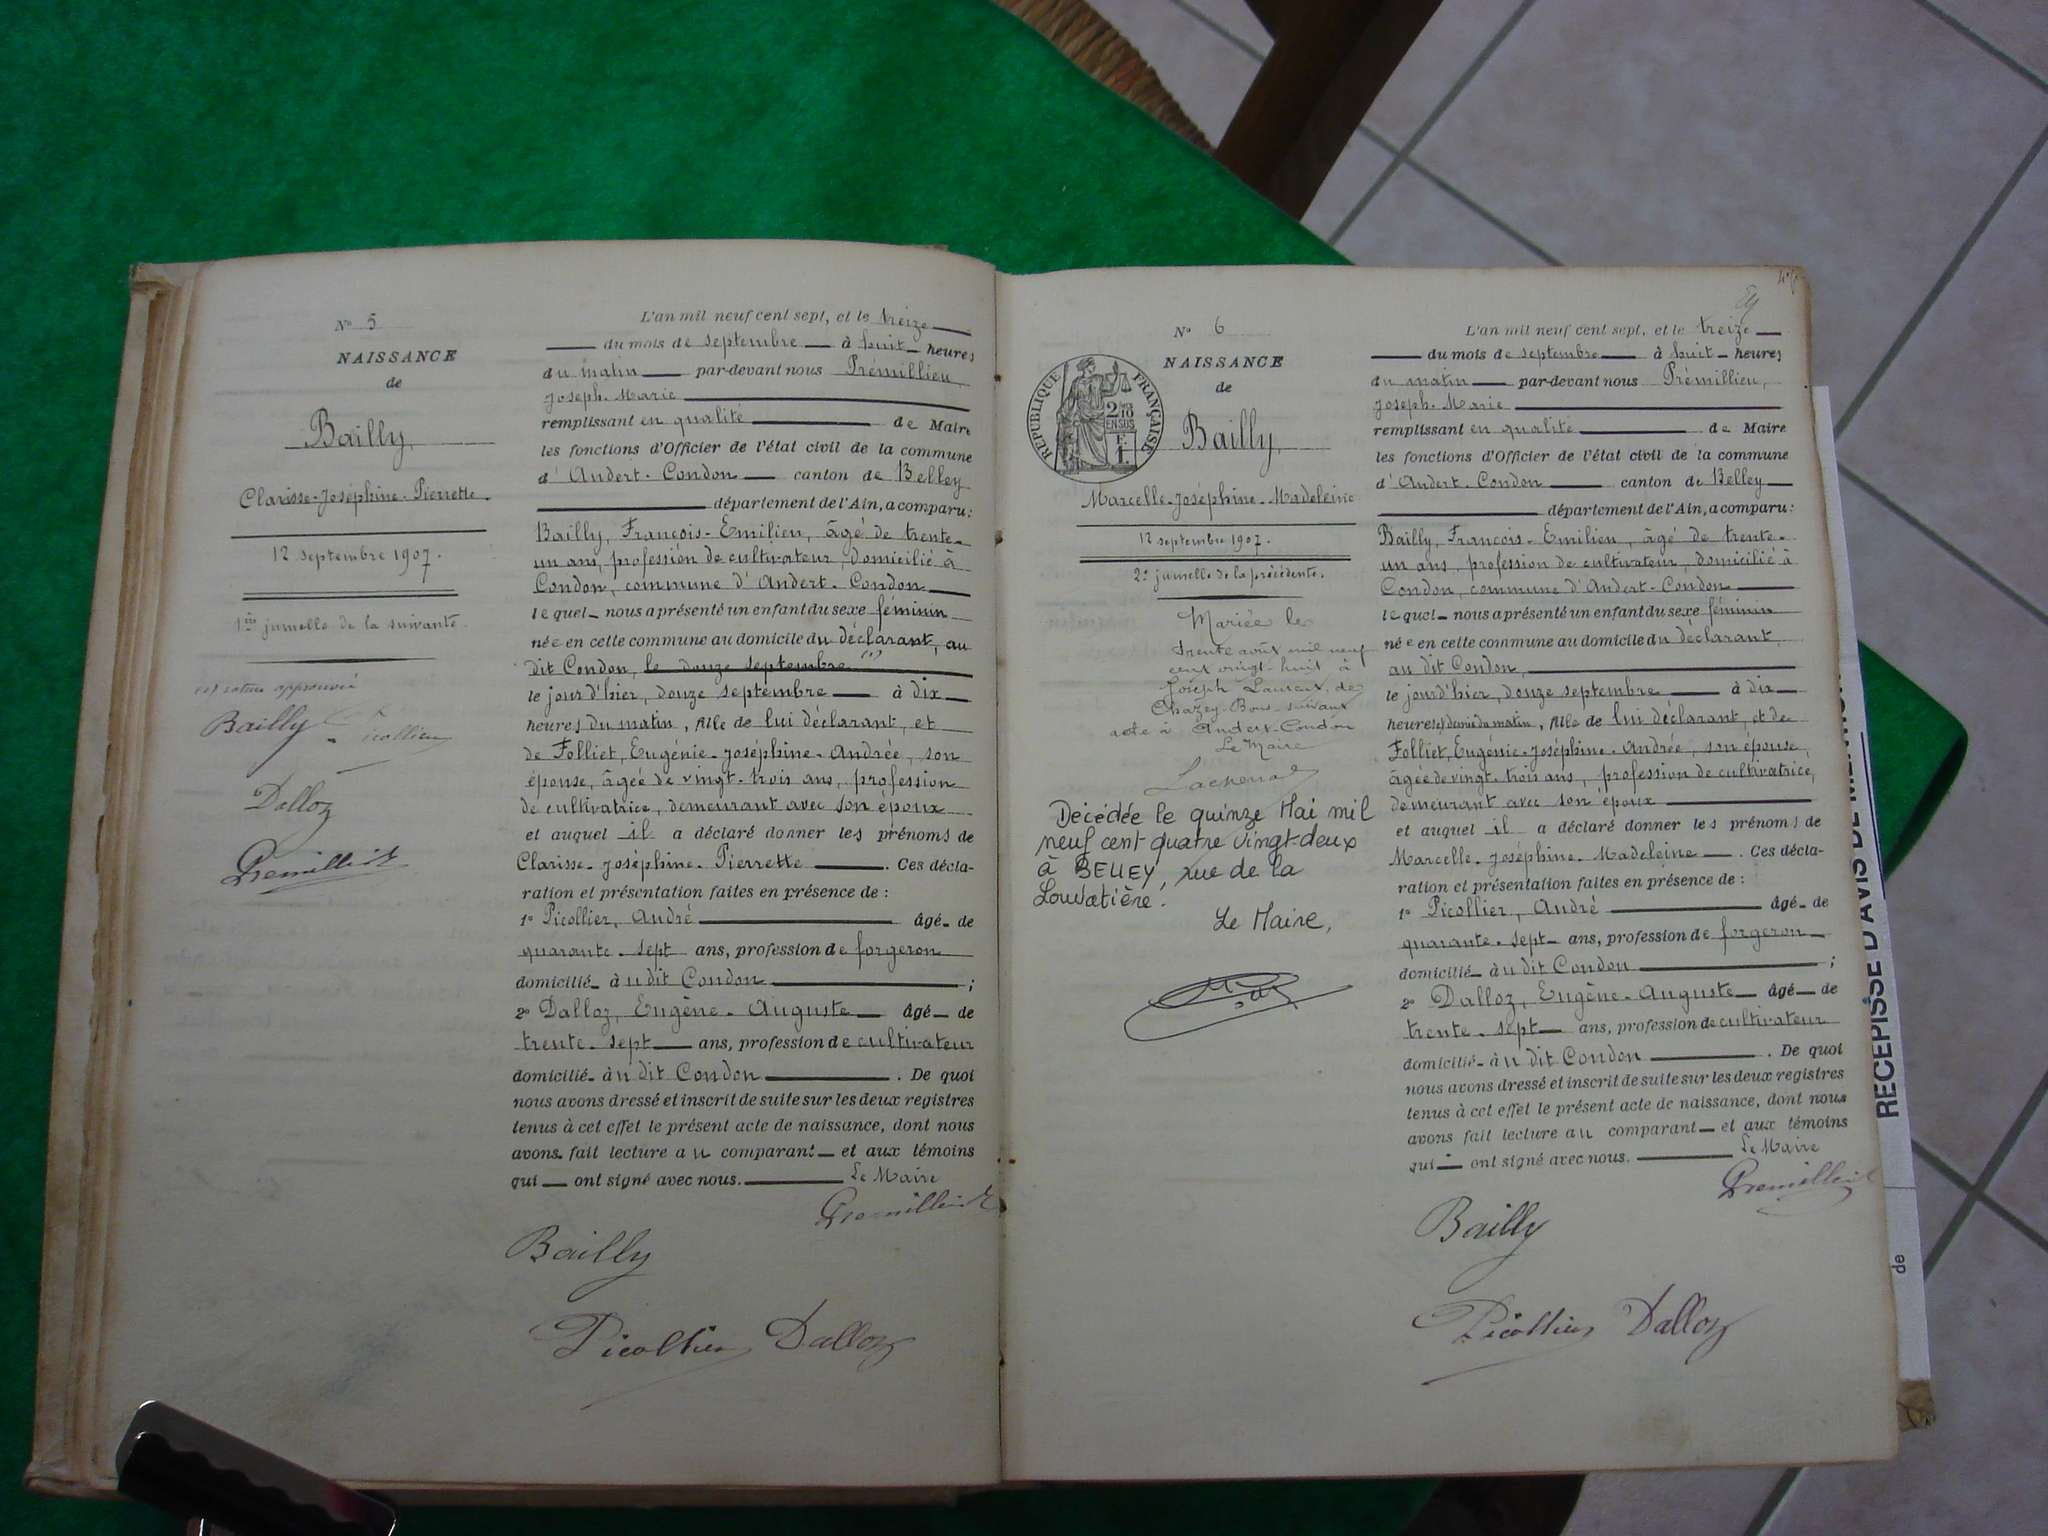 N° 5
NAISSANCE
de
Bailly,
Clarisse-Joséphine-Pierrette.
12 septembre 1907.
1ère jumelle de la suivante.
(1) rature approuvée
Bailly Picollier
Dalloz
Premillieu
L'an mil neuf cent sept, et le treize
du mois de septembre à huit heures
du matin par-devant nous Prémillieu,
Joseph-Marie
remplissant en qualité de Maire
les fonctions d'Officier de l'état civil de la commune
d'Andert-Condon canton de Belley
département de l'Ain, a comparu:
Bailly, François-Emilien, âgé de trente-
un ans, profession de cultivateur, domicilié à
Condon, commune d'Andert-Condon
lequel nous a présenté un enfant du sexe féminin
née en cette commune au domicile du déclarant, au
dit Condon, le douze septembre (1)
le jour d'hier, douze septembre à dix
heures du matin, fille de lui déclarant, et
de Folliet, Eugénie-Joséphine-Andrée, son
épouse, âgée de vingt-trois ans, profession
de cultivatrice, demeurant avec son époux
et auquel il a déclaré donner les prénoms de
Clarisse-Joséphine-Pierrette. Ces décla-
ration et présentation faites en présence de:
1° Picollier, André âgé de
quarante-sept ans, profession de forgeron
domicilié au dit Condon;
2° Dalloz, Eugène-Auguste âgé de
trente-sept ans, profession de cultivateur
domicilié au dit Condon. De quoi
nous avons dressé et inscrit de suite sur les deux registres
tenus à cet effet le présent acte de naissance, dont nous
avons fait lecture au comparant et aux témoins
qui ont signé avec nous. Le Maire
Premillieu
Bailly
Picollier Dalloz
N° 6
NAISSANCE
de
REPUBLIQUE FRANÇAISE
2/10
EN SUS
Bailly,
Marcelle-Joséphine-Madeleine
12 septembre 1907.
2e jumelle de la précédente.
Mariée le
trente août mil neuf
cent vingt-huit à
Joseph Laurent, de
Chazey-Bons suivant
acte à Andert-Condon
Le Maire
Décédée le quinze Mai mil
neuf cent quatre vingt-deux
à BELLEY, rue de la
Louvatière.
Le Maire,
L'an mil neuf cent sept, et le treize
du mois de septembre à huit heures
du matin par-devant nous Prémillieu,
Joseph-Marie
remplissant en qualité de Maire
les fonctions d'Officier de l'état civil de la commune
d'Andert-Condon canton de Belley
département de l'Ain, a comparu:
Bailly, François-Emilien, âgé de trente-
un ans, profession de cultivateur, domicilié à
Condon, commune d'Andert-Condon
lequel nous a présenté un enfant du sexe féminin
née en cette commune au domicile du déclarant
au dit Condon,
le jour d'hier, douze septembre à dix
heures et demie du matin, fille de lui déclarant, et de
Folliet, Eugénie-Joséphine-Andrée, son épouse,
âgée de vingt-trois ans, profession de cultivatrice,
demeurant avec son époux
et auquel il a déclaré donner les prénoms de
Marcelle-Joséphine-Madeleine. Ces décla-
ration et présentation faites en présence de:
1° Picollier, André âgé de
quarante-sept ans, profession de forgeron
domicilié au dit Condon;
2° Dalloz, Eugène-Auguste âgé de
trente-sept ans, profession de cultivateur
domicilié au dit Condon. De quoi
nous avons dressé et inscrit de suite sur les deux registres
tenus à cet effet le présent acte de naissance, dont nous
avons fait lecture au comparant et aux témoins
qui ont signé avec nous. Le Maire
Premillieu
Bailly
Picollier Dalloz
RECEPISSE D'AVIS DE MENTION
de